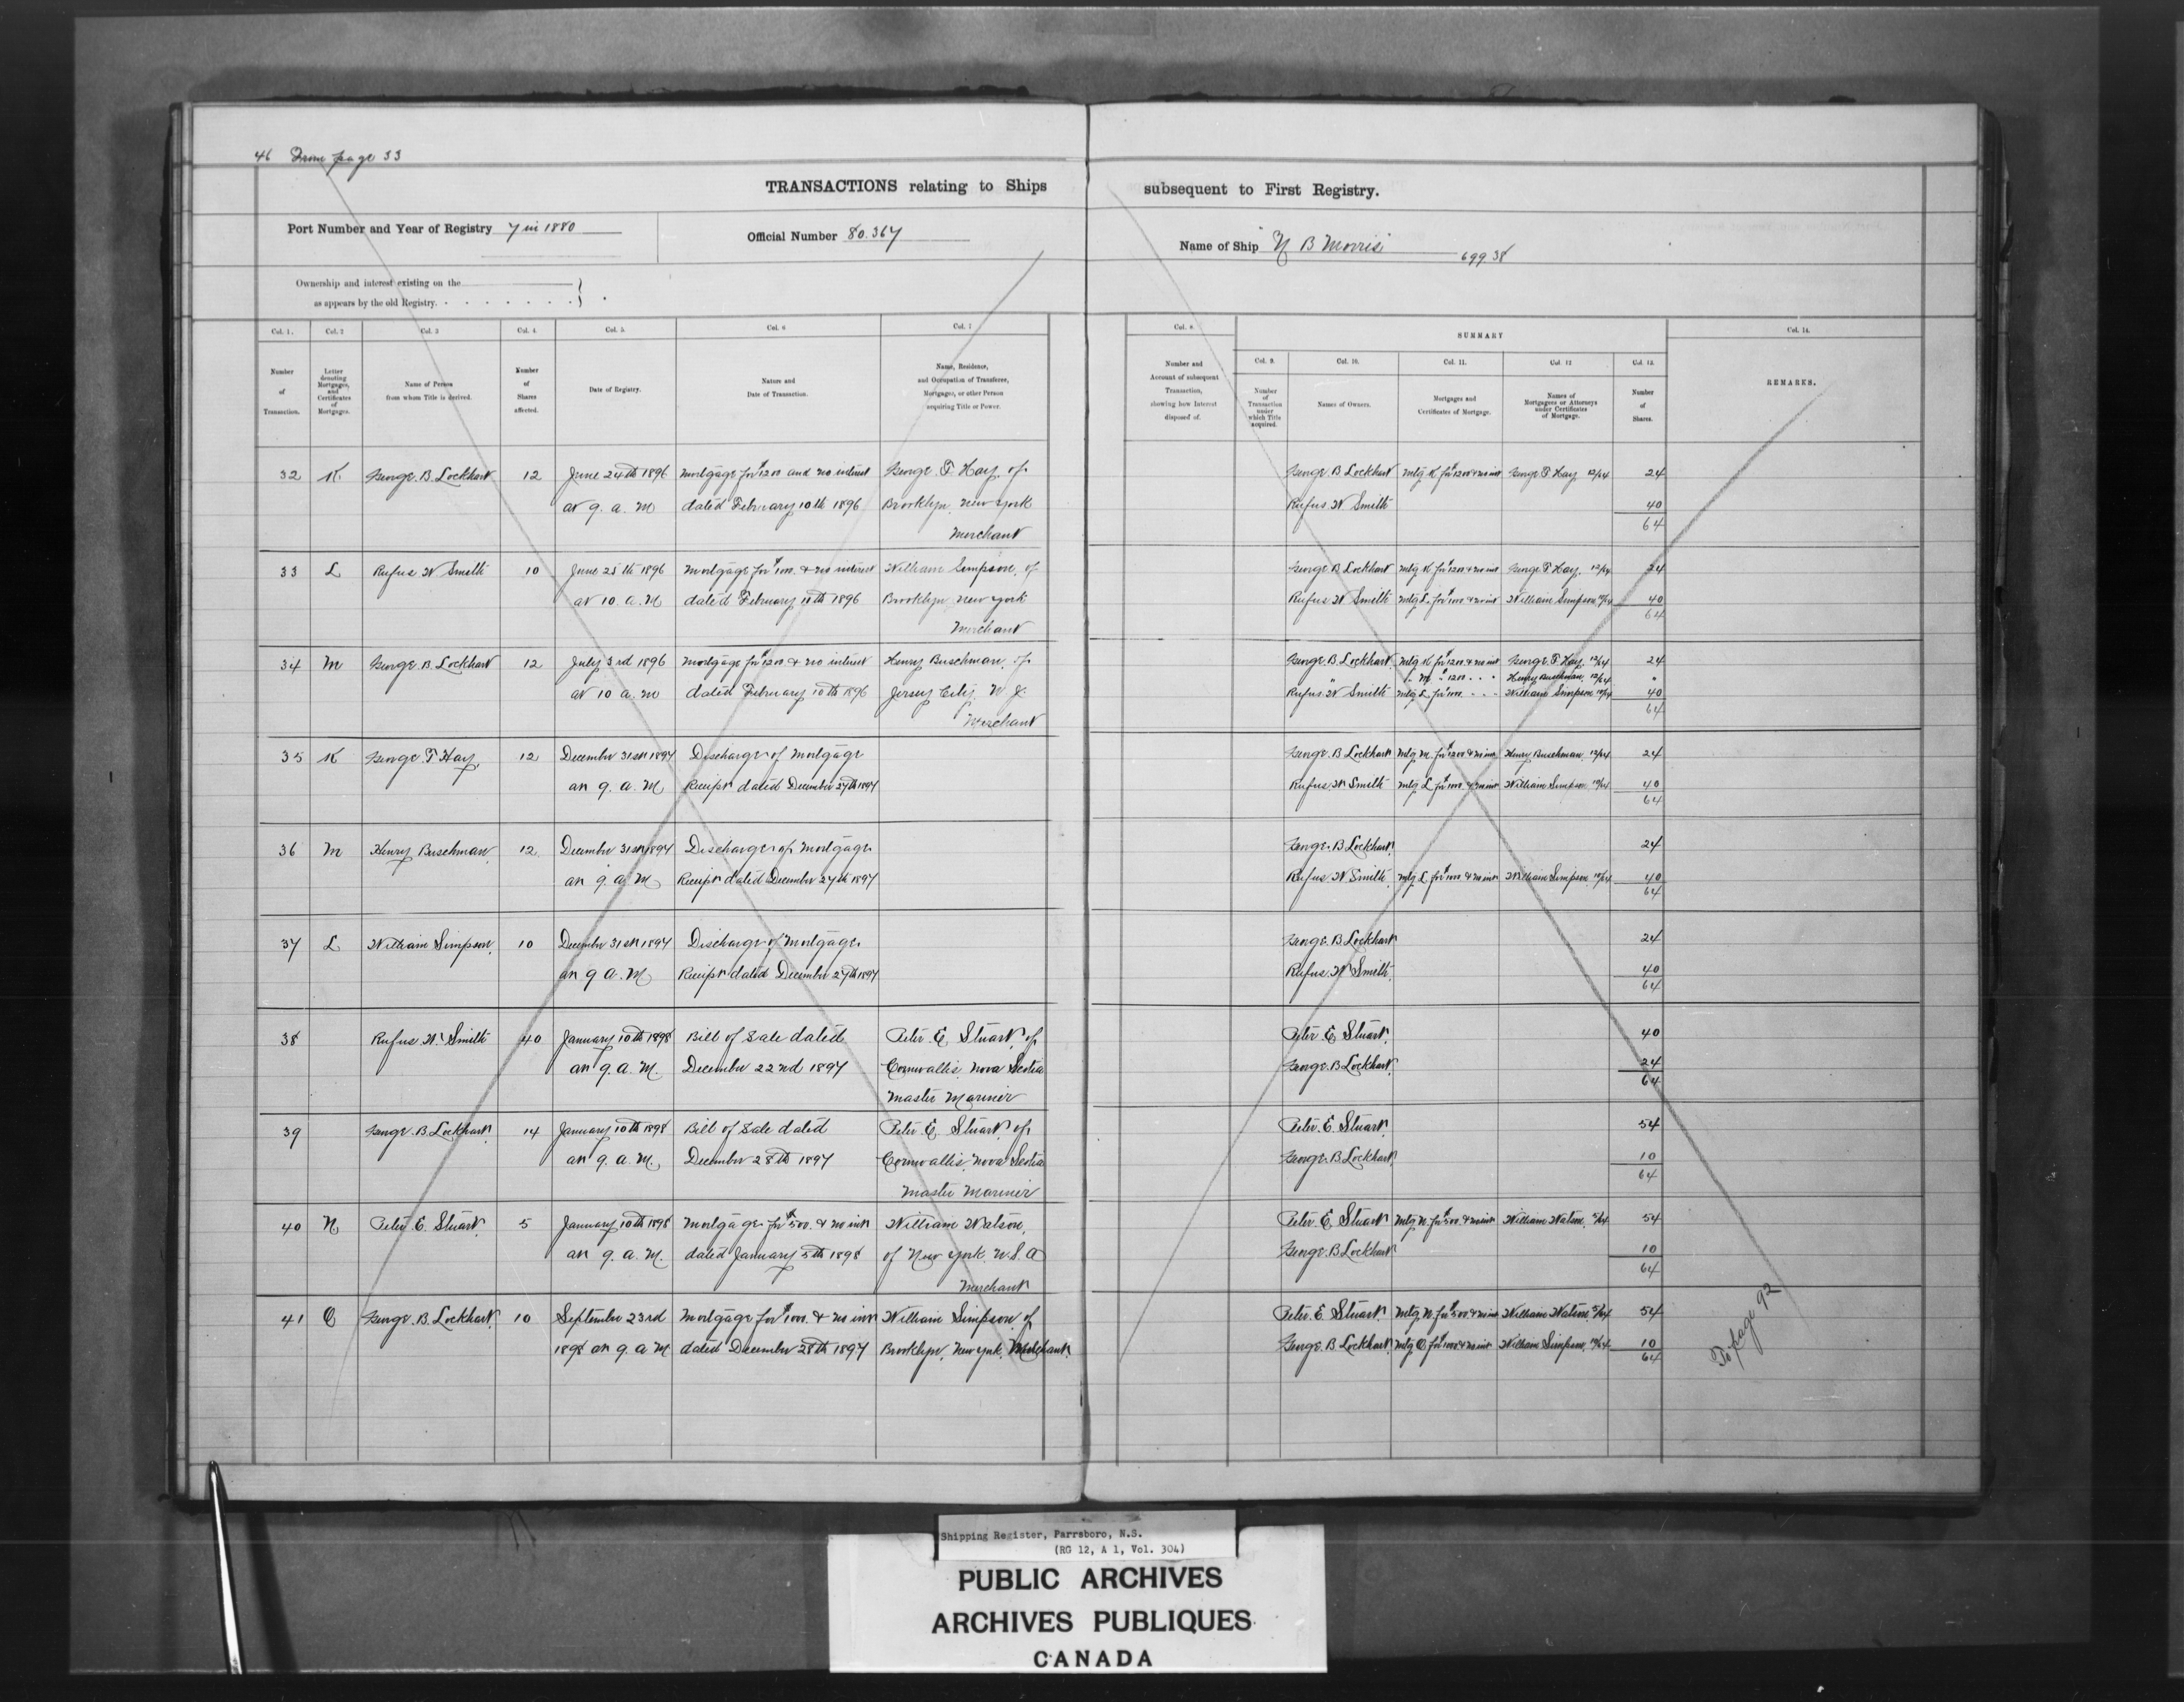 46 From page 33
TRANSACTIONS relating to Ships subsequent to First Registry.
Port Number and Year of Registry 7 in 1880
Official Number 80.367
Name of Ship "N B Morris" 699 38
Ownership and interest existing on the
as appears by the old Registry.
Col. 1. Col. 2 Col. 3 Col. 4. Col. 5. Col. 6 Col. 7
Number of Transaction.
Letter denoting Mortgages, and Certificates of Mortgages.
Name of Person from whom Title is derived.
Number of Shares affected.
Date of Registry.
Nature and Date of Transaction.
Name, Residence, and Occupation of Transferee, Mortgagee, or other Person acquiring Title or Power.
Col. 8. SUMMARY Col. 14.
Col. 9. Col. 10. Col. 11. Col. 12 Col. 13.
Number and Account of subsequent Transaction, showing how Interest disposed of.
Number of Transaction under which Title acquired.
Names of Owners.
Mortgages and Certificates of Mortgage.
Names of Mortgagees or Attorneys under Certificates of Mortgage.
Number of Shares.
REMARKS.
32 K George. B. Lockhart 12 June 24th 1896 Mortgage for $1200 and no interest George. T. Hay, of
at 9. a. m dated February 10th 1896 Brooklyn, New York
Merchant
George B Lockhart Mtg K for $1200 & no int George T Hay, 12/64 24
Rufus. W Smith 40
64
33 L Rufus W Smith 10 June 25th 1896 Mortgage for $1000. & no interest William Simpson, of
at 10. a. m dated February 10th 1896 Brooklyn New York
Merchant
George B. Lockhart Mtg K for $1200 & no int George T Hay, 12/64 24
Rufus W Smith Mtg L. for $1000 & no int William Simpson 10/64 40
64
34 M George. B. Lockhart 12 July 3rd 1896 Mortgage for $1200 & no interest Henry Buschman, of
at 10 a. m dated February 10th 1896 Jersey City, N J.
Merchant
George B. Lockhart Mtg K for $1200 & no int George. T. Hay, 12/64 24
" M " 1200 " " " Henry Buschman, 12/64 "
Rufus. W Smith Mtg L for $1000. " " " William Simpson 10/64 40
64
35 K George. T. Hay, 12 December 31st 1897 Discharge of Mortgage
at 9. a. m Receipt dated December 27th 1897
George. B Lockhart Mtg M. for $1200 & no int Henry Buschman, 12/64 24
Rufus. W Smith Mtg L for $1000. & no int William Simpson 10/64 40
64
36 M Henry Buschman, 12 December 31st 1897 Discharge of Mortgage
at 9. a. m Receipt dated December 27th 1897
George. B Lockhart, 24
Rufus W Smith, Mtg L for $1000 & no int William Simpson, 10/64 40
64
37 L William Simpson, 10 December 31st 1897 Discharge of Mortgage.
at 9 a. m Receipt dated December 27th 1897
George. B Lockhart 24
Rufus. W Smith, 40
64
38 Rufus. W. Smith 40 January 10th 1898 Bill of Sale dated Peter. E. Stuart, of
at 9. a. m. December 22nd 1897 Cornwallis, Nova Scotia
Master Mariner
Peter E Stuart, 40
George. B Lockhart, 24
64
39 George. B. Lockhart 14 January 10th 1898 Bill of Sale dated Peter. E. Stuart, of
at 9. a. m, December 28th 1897 Cornwallis, Nova Scotia
Master Mariner
Peter. E. Stuart, 54
George. B. Lockhart, 10
64
40 N Peter. E. Stuart, 5 January 10th 1898 Mortgage for $500. & no int William Watson,
at 9. a. m. dated January 5th 1898 of New York. U. S. A
Merchant
Peter. E. Stuart Mtg N. for $500. & no int William Watson, 5/64 54
George. B Lockhart 10
64
41 O George. B. Lockhart, 10 September 23rd Mortgage for $1000. & no int William Simpson, of
1898 at 9. a m dated December 28th 1897 Brooklyn, New York, Merchant.
Peter. E Stuart. Mtg. N. for $500 & no int William Watson, 5/64 54
George B Lockhart, Mtg O for $1000 & no int William Simpson, 10/64 10
64
To page 92
Shipping Register, Parrsboro, N.S.
(RG 12, A 1, Vol. 304)
PUBLIC ARCHIVES
ARCHIVES PUBLIQUES
CANADA